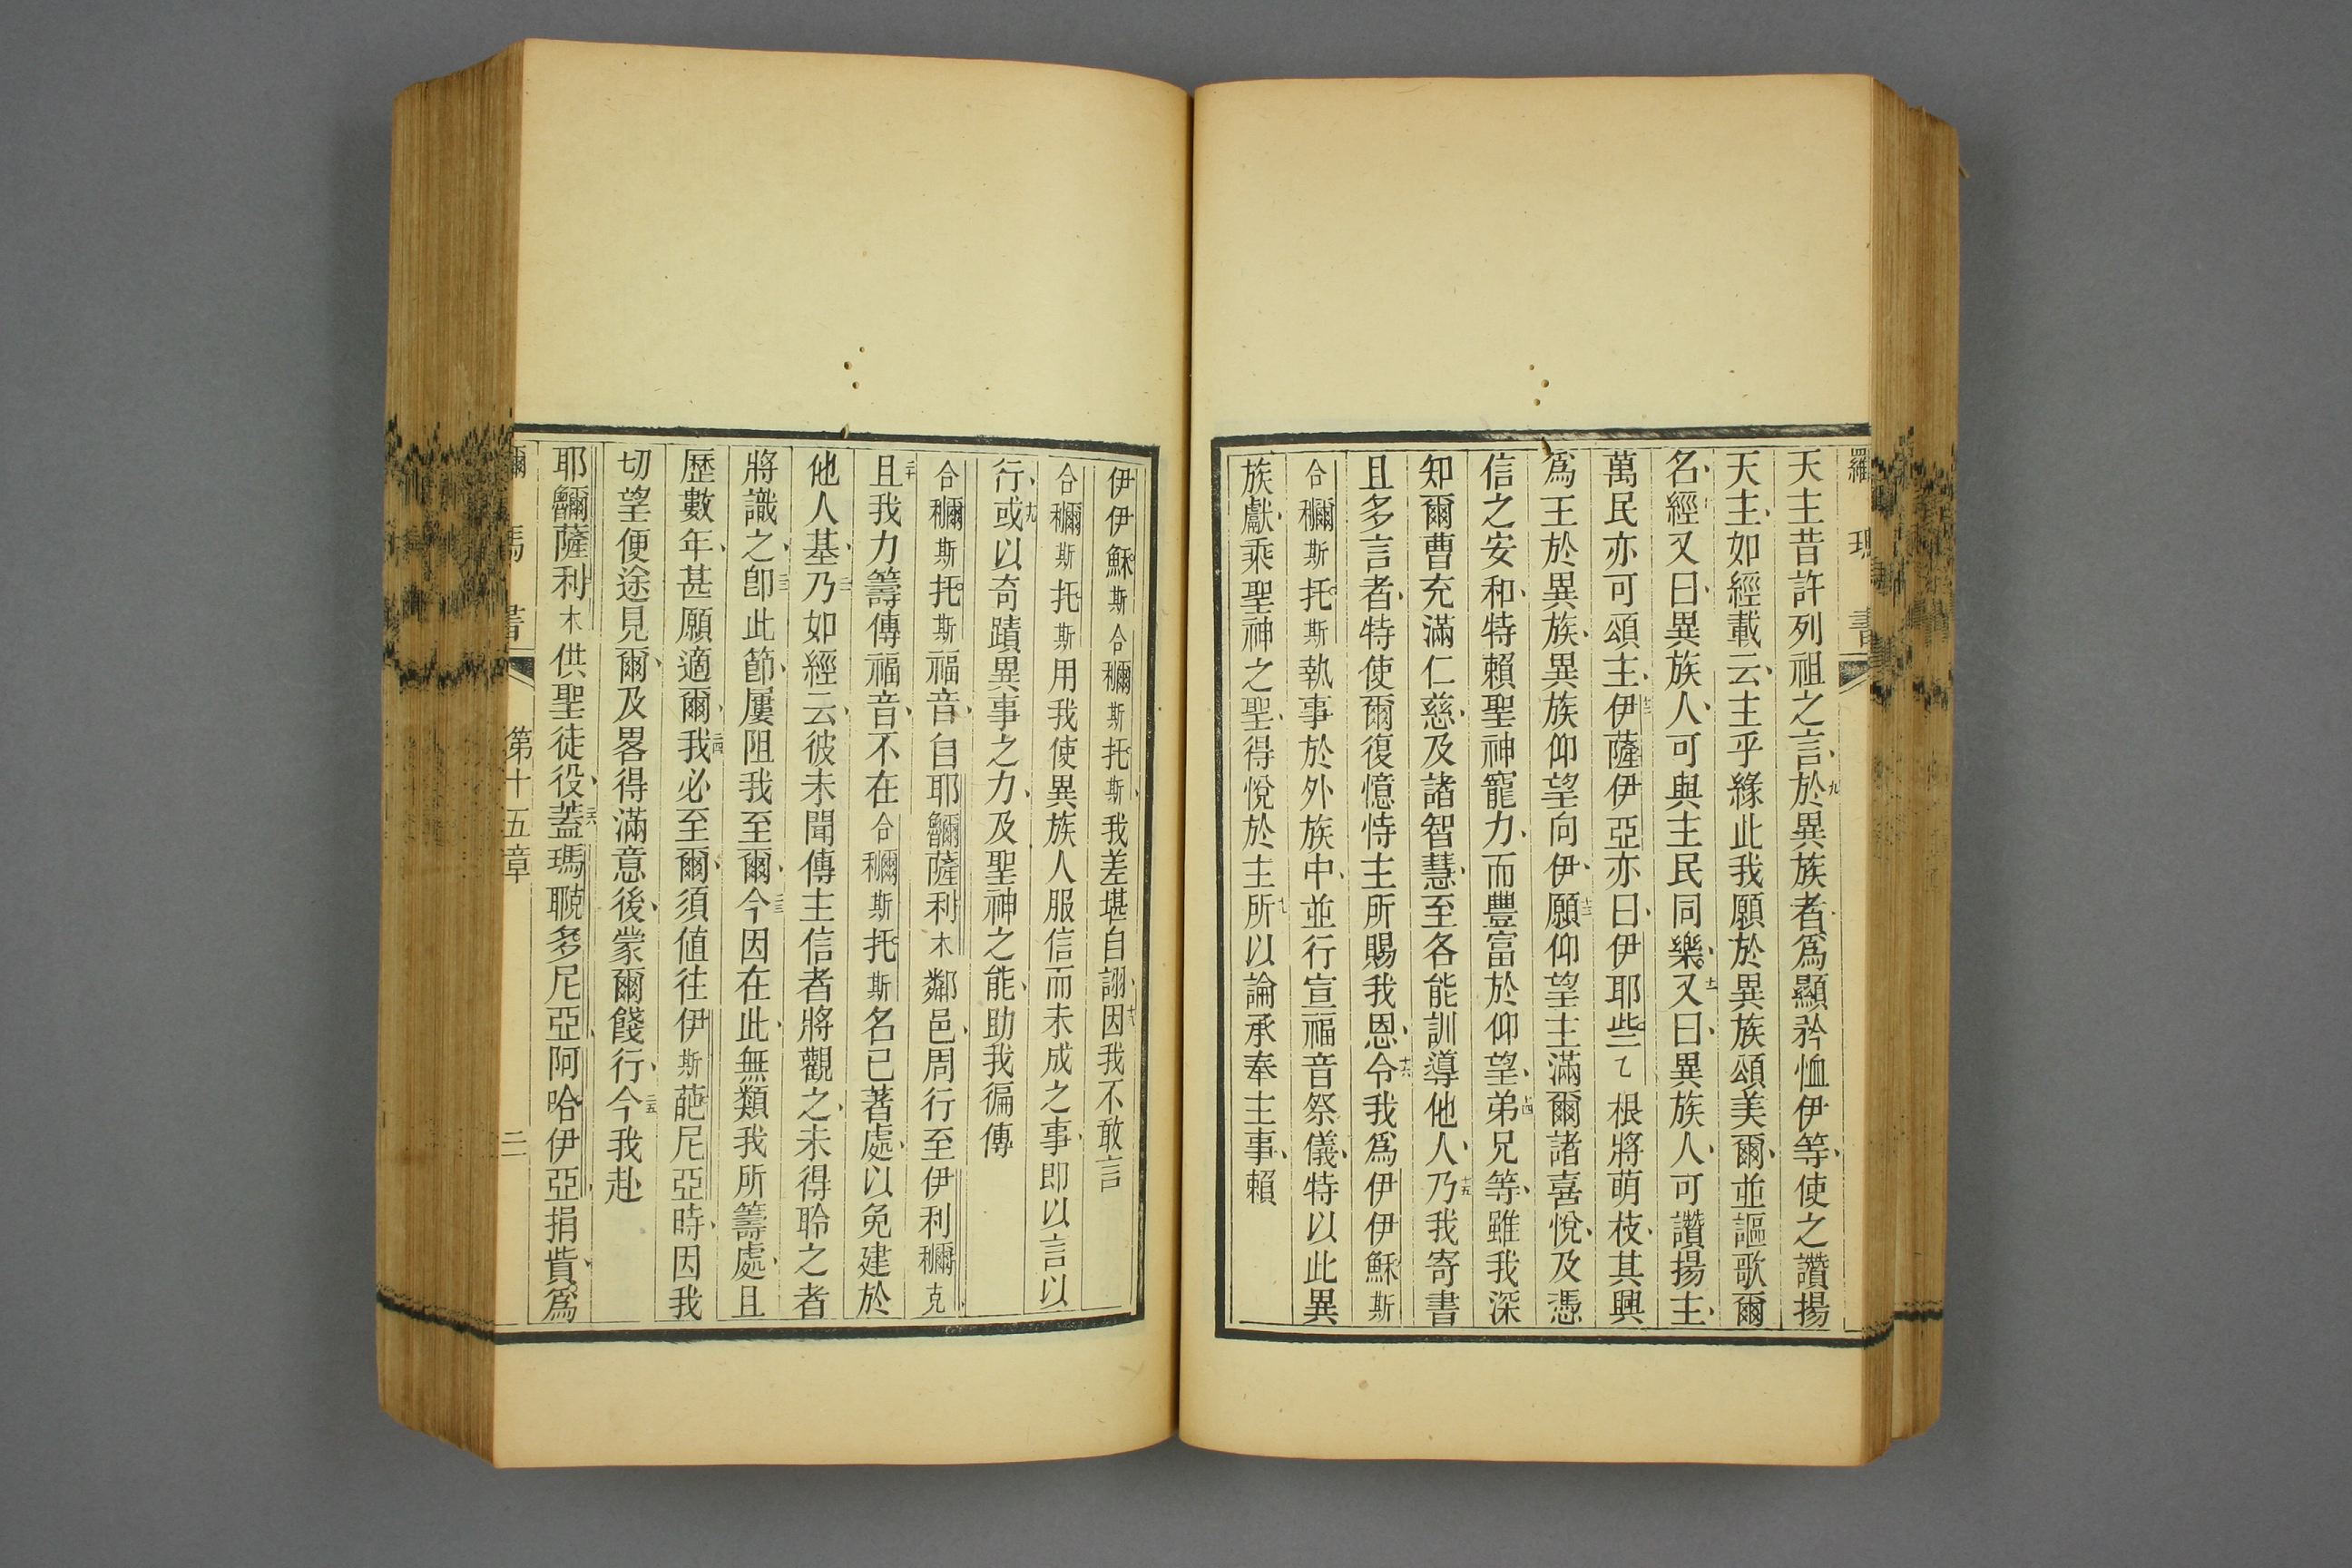 羅
書
天主昔許列祖之言、九於異族者、爲顯矜恤伊等、使之讚揚
天主、如經載云、主乎緣此我願於異族頌美爾、並謳歌爾
名、十經又曰、異族人、可與主民同樂、十一又曰、異族人、可讚揚主、
萬民亦可頌主、十二伊薩伊亞亦曰、伊耶些乙根將萌枝、其興
爲王於異族、異族仰望向伊、十三願仰望主滿爾諸喜悅、及憑
信之安和、特賴聖神寵力、而豐富於仰望、十四弟兄等、雖我深
知爾曹充滿仁慈、及諸智慧、至各能訓導他人、十五乃我寄書
且多言者、特使爾復憶恃主所賜我恩、十六令我爲伊伊穌斯
合𥀬斯托斯執事於外族中、並行宣福音祭儀、特以此異
族獻、乘聖神之聖、得悅於主、十七所以論承奉主事、賴
伊伊穌斯合𥀬斯托斯、我差堪自詡、十八因我不敢言
合𥀬斯托斯用我使異族人服信而未成之事、即以言以
行、十九或以奇蹟異事之力、及聖神之能、助我徧傳
合𥀬斯托斯福音、自耶𪋿薩利木鄰邑、周行至伊利𥀬克、
二十且我力籌傳福音、不在合𥀬斯托斯名已著處、以免建於
他人基、二一乃如經云、彼未聞傳主信者將觀之、未得聆之者
將識之、二二卽此節、屢阻我至爾、二三今因在此、無類我所籌處、且
歷數年、甚願適爾、二四我必至爾、須値往伊斯葩尼亞時、因我
切望便途見爾、及畧得滿意後、蒙爾餞行、二五今我赴
耶𪋿薩利木供聖徒役、二六蓋瑪聸多尼亞、阿哈伊亞、捐貲、爲
書
第十五章
二